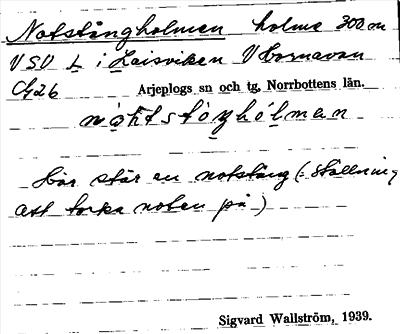 Notstångholmen holme 300 m
VSV L i Laisviken V Hornavan
Arjeplogs sn och tg, Norrbottens län.
Här står en notstång (: ställning
att torka noten på)
Sigvard Wallström, 1939.